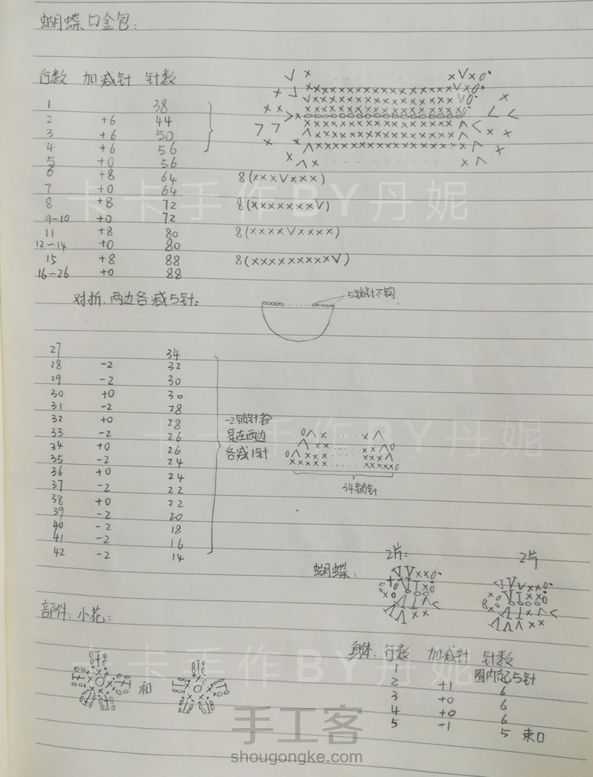 蝴蝶口金包:
行数 加减针 针数
1 38
2 +6 44
3 +6 50
4 +6 56
5 +0 56
6 +8 64 8(xxxVxxx)
7 +0 64
8 +8 72 8(xxxxxxxV)
9~10 +0 72
11 +8 80 8(xxxxVxxxx)
12~14 +0 80
15 +8 88 8(xxxxxxxxxV)
16~26 +0 88
对折,两边各减5针:
5锁针不钩
27 34
28 -2 32
29 -2 30
30 +0 30
31 -2 28
32 +0 28
33 -2 26
34 +0 26
35 -2 24
36 +0 24
37 -2 22
38 +0 22
39 -2 20
40 -2 18
41 -2 16
42 -2 14
是在两边
各减1针
34锁针
蝴蝶:
2片:
2片
部件:小花:
和
身体: 行数 加减针 针数
1 圈内起5针
2 +1 6
3 +0 6
4 +0 6
5 -1 5 束口
卡卡手作BY丹妮
卡卡手作BY丹妮
卡卡手作BY丹妮
手工客
shougongke.com